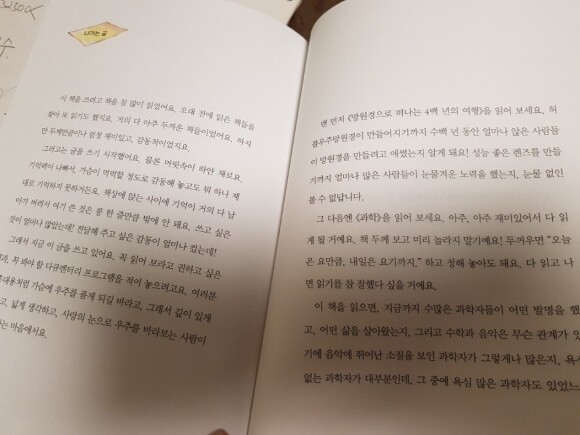 나가는 글
이 책을 쓰려고 책을 참 많이 읽었어요. 오래 전에 읽은 책들을
찾아 또 읽기도 했지요. 거의 다 아주 두꺼운 책들이었어요. 하지
만 두께만큼이나 엄청 재미있고, 감동적이었지요.
그러고는 글을 쓰기 시작했어요. 물론 머릿속이 하얀 채로요.
기억력이 나빠서, 가슴이 먹먹할 정도로 감동해 놓고도 뭐 하나 제
대로 기억하지 못하거든요. 책상에 앉는 사이에 기억이 거의 다 날
아가 버려서 여기 쓴 것은 콩 한 줌만큼 밖에 안 돼요. 쓰고 싶은
것이 얼마나 많았는데! 전달해 주고 싶은 감동이 얼마나 컸는데!
그래서 지금 이 글을 쓰고 있어요. 꼭 읽어 보라고 권하고 싶은
꼭 봐야 할 다큐멘터리 프로그램을 적어 놓으려고요. 여러분
가슴에 우주를 품게 되길 바라고, 그래서 깊이 있게
넓게 생각하고, 사랑의 눈으로 우주를 바라보는 사람이
마음에서요.
맨 먼저 《망원경으로 떠나는 4백 년의 여행》을 읽어 보세요. 허
블우주망원경이 만들어지기까지 수백 년 동안 얼마나 많은 사람들
이 망원경을 만들려고 애썼는지 알게 돼요! 성능 좋은 렌즈를 만들
기까지 얼마나 많은 사람들이 눈물겨운 노력을 했는지, 눈물 없인
볼 수 없답니다.
그 다음엔 《과학》을 읽어 보세요. 아주, 아주 재미있어서 다 읽
게 될 거예요. 책 두께 보고 미리 놀라지 말기예요! 두꺼우면 “오늘
은 요만큼, 내일은 요기까지.” 하고 정해 놓아도 돼요. 다 읽고 나
면 읽기를 참 잘했다 싶을 거예요.
이 책을 읽으면, 지금까지 수많은 과학자들이 어떤 발명을 했
고, 어떤 삶을 살아왔는지, 그리고 수학과 음악은 무슨 관계가 있
기에 음악에 뛰어난 소질을 보인 과학자가 그렇게나 많은지, 욕심
없는 과학자가 대부분인데, 그 중에 욕심 많은 과학자도 있었느